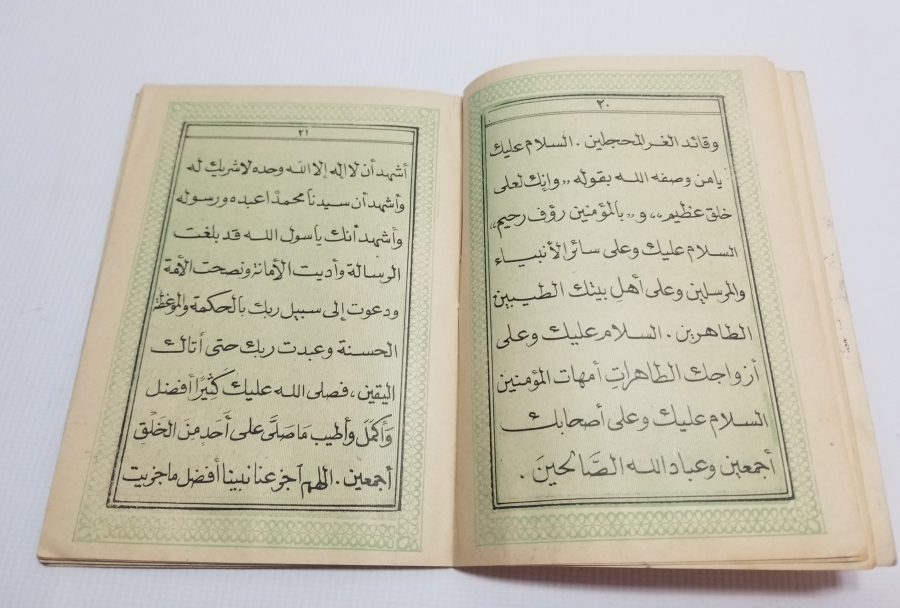 ٢٠
وقائد الغر المحجلين . السلام عليك
يا من وصفه الله بقوله ,, وإنك لعلى
خلق عظيم ,, و ,, بالمؤمنين رؤف رحيم ,,
السلام عليك وعلى سائر الأنبياء
والمرسلين وعلى أهل بيتك الطيبين
الطاهرين . السلام عليك وعلى
أزواجك الطاهراتِ أمهات المؤمنين
السلام عليك وعلى أصحابك
أجمعين وعباد الله الصَّالحينَ .
٢١
أشهد أن لا إله إلا الله وحده لا شريك له
وأشهد أن سيدنا محمدًا عبده ورسوله
وأشهد أنك ياسول الله قد بلغت
الرسالة وأديت الأمانة ونصحت الأمة
ودعوت إلى سبيل ربك بالحكمة والموعظة
الحسنة وعبدت ربك حتى أتاك
اليقين ، فصلى الله عليك كثيرًا أفضل
وَأكمَلَ وأطيب مَا صَلَّى على أَحَدٍ مِنَ الخَلْقِ
أجمعين . اللهم آجز عنا نبينا أفضل ما جزيت